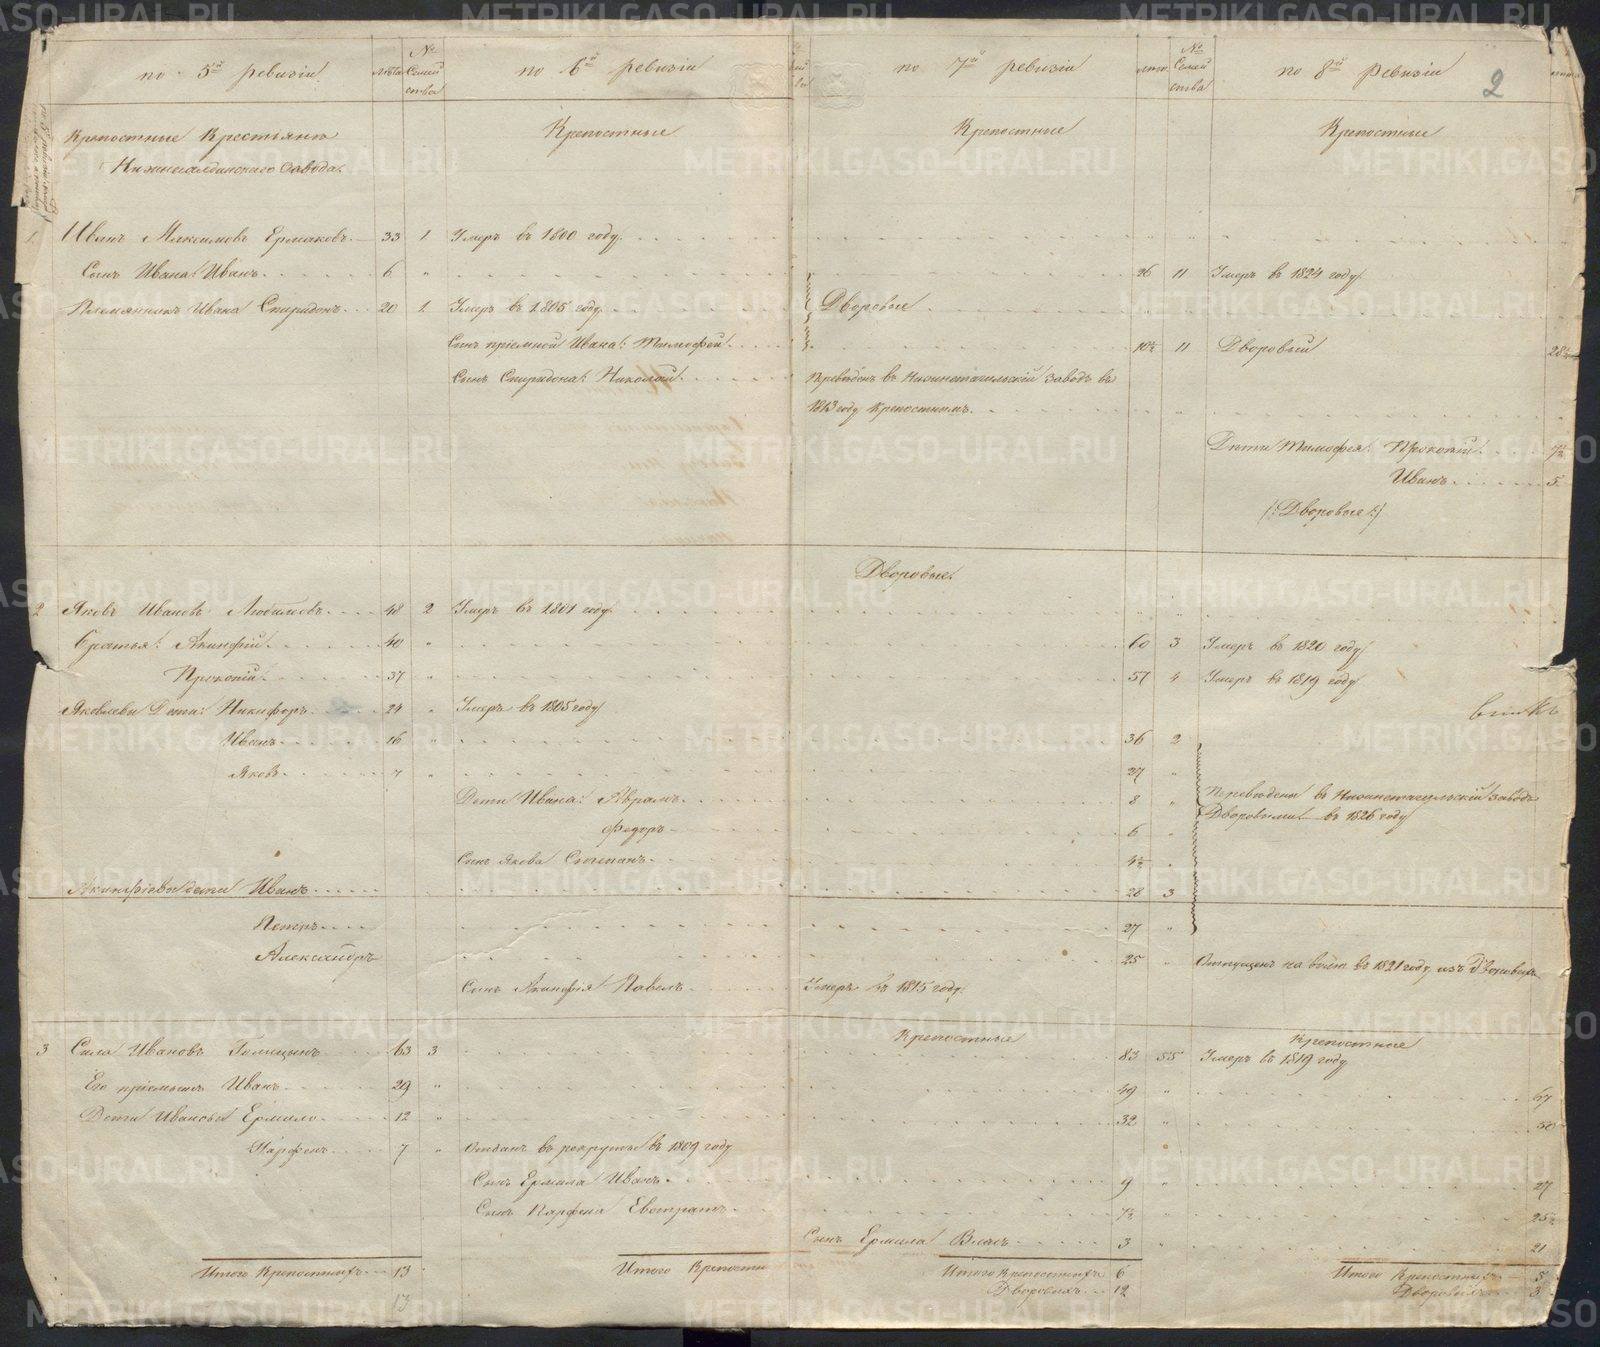 по 5й ревизіи лѣта № Семей ства по 6й ревизіи по 7й ревизіи лѣта № Семей ства по 8й Ревизіи 2
Крѣпостные Крестьянъ Крепостные Крепостные Крепостные
Нижнесалдинскаго завода.
1. Иванъ Максимовъ Ермаковъ 33 1. Умеръ въ 1800 году.
Сынъ Ивана: Иванъ 6 " 26 11 Умеръ въ 1824 году
Племянникъ Ивана Спиридонъ 20 1. Умеръ въ 1805 году. Дворовые
Сынъ пріемной Ивана: Тимофей 10½ 11 Дворовый 28½
Сынъ Спиридона: Николай Переведенъ въ Нижнетагильскій Заводъ въ
1813 году Крепостнымъ.
Дѣти Тимофея: Прокопій 7½
Иванъ 5.
(:Дворовые:)
Дворовые.
2 Яковъ Ивановъ Любимовъ 48 2 Умеръ въ 1801 году
Братья: Акинфій 40 " 60 3 Умеръ въ 1820 году
Прокопій 37 " 57 4 Умеръ въ 1819 году
Яковлевы Дѣти: Никифоръ 24 " Умеръ въ 1805 году
Иванъ 16 " 36 2
Яковъ 7 " 27 "
Дѣти Ивана: Абрамъ 8 " Переведены въ Нижнетагильскій Заводъ
Федоръ 6 " Дворовыми въ 1826 году
Сынъ Якова Степанъ 4½ "
Акинфіевы дѣти Иванъ 28 3
Петръ 27 "
Александръ 25 " Отпущенъ на волю въ 1821 году изъ Дворовыхъ
Сынъ Акинфія Павелъ Умеръ въ 1815 году.
Крепостные Крепостные
3 Сила Ивановъ Голицынъ 63 3 83 55 Умеръ въ 1819 году
Его пріемышъ Иванъ 29 " 49 " 67
Дѣти Ивановы Ермило 12 " 32 " 50
Парфенъ 7 " Отданъ въ рекруты въ 1809 году
Сынъ Ермила Иванъ 9 " 27
Сынъ Парфена Евстратъ 7½ " 25½
Сынъ Ермила Власъ 3 " 21
Итого Крепостныхъ 13 Итого Крепостн Итого Крепостныхъ 6 Итого Крепостныхъ 5
Дворовыхъ 12 Дворовыхъ 3
13
METRIKI.GASO-URAL.RU